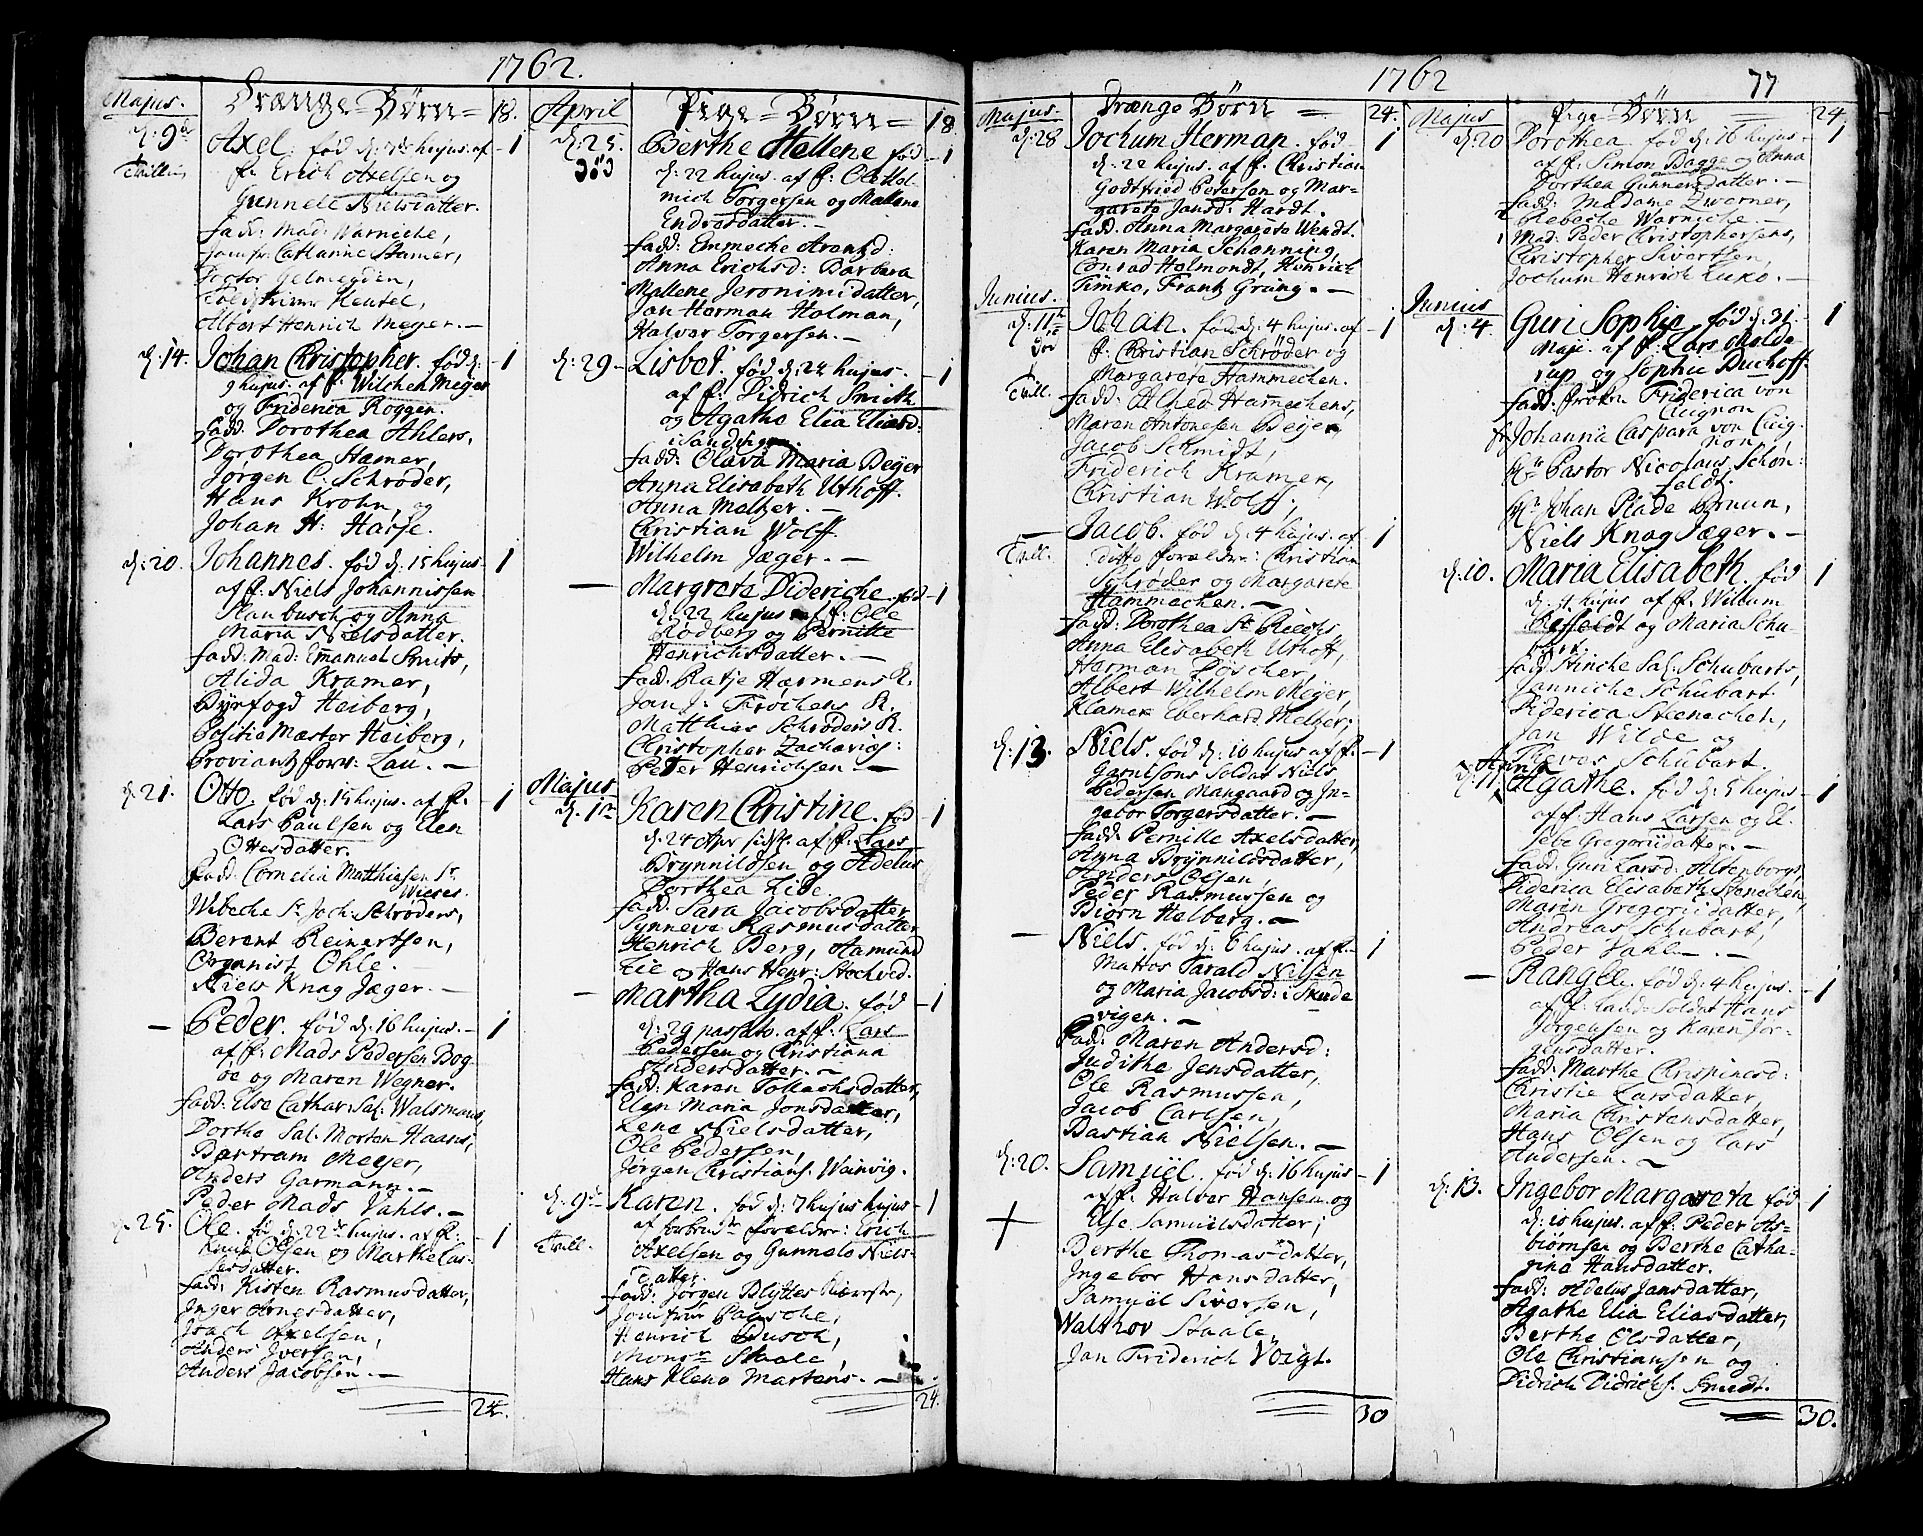 1762.
Majus. Drænge-Børn= 18.
d: 9de Axel. fød d: 7de hujus. af 1
Tvilling f: Erich Axelsen og
Gunnele Nielsdatter.
fadd: Mad: Warniche,
Jomfr: Cathanne Stamer,
Albert Henrich Meyer. —
d: 14. Johan Christopher. fød d: 1
9 hujus. af f: Wilchen Meyer
og Friderica Roggen.
fadd: Dorothea Ahlers,
Dorothea Hæmer,
Jørgen C. Schrøder,
Hans Krohn, og
Johan H: Hasse.
d: 20. Johannes. fød d: 15 hujus 1
af f: Niels Johannissen
Haubusch og Anna
Maria Nielsdatter.
fadd: Mad: Emanuel Smits,
Alida Kramer,
Byefogd Heiberg,
Politie Mæster Heiberg,
Proviantz forv: Lau. —
d: 21. Otto. fød d: 15 hujus. af f: 1
Lars Paulsen og Elen
Ottesdatter.
fadd: Cornelia Matthiesen Sr
Wieses.
Wibeche Sr Joch: Schrøders,
Berent Reinertsen,
Organist Ohle.
Niels Knag Jæger. —
— Peder. fød d: 16 hujus. 1
af f: Mads Pedersen Bog-
øe og Maren Wegner.
fadd: Else Cathar: Sal: Walsmans,
Dorthe Sal: Morten Haans,
Bartram Meyer,
Anders Garmann. —
Peder Mads Vahls. —
d: 25. Ole. fød d: 22de hujus. af f: 1
Knud Olsen og Marthe Las-
sesdatter.
fadd: Kisten Rasmusdatter,
Inger Arnesdatter,
Isach Axelsen,
Anders Iversen,
Anders Jacobsen. —
24.
April Pige-Børn= 18
d: 25. Berthe Hellene fød 1
død d: 22 hujus. af f: Ole Hol-
mich Torgersen og Mallene
Endresdatter. —
fadd: Emmeche Arentzd:
Anna Erichsd: Barbara
Mallene Jeronimidatter,
Jan Herman Holman,
Halvor Torgersen. —
d: 29 Lisbet. fød d: 22 hujus. 1
af f: Didrich Smith
og Agathe Elia Eliasd:
i Sandvigen.
fadd: Olava Maria Beyer
Anna Elisabeth Uthoff.
Anna Meltzer. —
Christian Wolff.
Wilhelm Jæger. —
— Margrete Dideriche. fød 1
d: 22 hujus af f: Ole
Rødberg og Pernille
Henrichsdatter. —
fadd: Katje Harmens K.
Jan J: Frochens K.
Matthias Schrøders K.
Christopher Zacharias:
Peter Henrichsen —
Majus
d: 1te Karen Christine. fød 1
d: 24 Apr sidstl. af f: Lars
Brynnildsen og Adelus
Dorthea Lide.
fadd: Sara Jacobsdatter
Synneve Rasmusdatter
Henrich Berg, Aamund
Lie og Hans Henr: Stochved.
— Martha Lydia. fød 1
d: 29 passato. af f. Lars
Pedersen og Christiana
Andersdatter. —
fadd: Karen Tollachsdatter,
Elen Maria Jonsdatter,
Lene Nielsdatter,
Ole Pedersen,
Jørgen Christians: Wainvig.
d: 9de Karen. fød d: 7 hujus hujus 1
Tvill. af forbendte forældre: Erich
Axelsen og Gunnele Niels-
datter.
fadd: Jørgen Blyttes Kiæreste,
Jomfrue Pausche,
Henrich Busch,
Monsr Staale,
Hans Kleno Martens. —
24.
1762 77
Majus Drænge Børn = 24.
d: 28 Jochum Herman. fød 1
d: 22 hujus. af f: Christian
Godtfried Petersen og Mar-
garete Jansd: Hardt.
fadd: Anna Margarete Wendt.
Karen Maria Schønning,
Conrad Holmondt, Henrich
Timko, Frantz Grüng. —
Junius.
d: 11te Johan. fød d: 4 hujus. af 1
død f: Christian Schrøder og
Tvill. Margarete Hammechen.
fadd: Alhed Hamechens,
Maren Antonesen Beyer,
Jacob Schmidt,
Friderich Kramer,
Christian Wolff,
— Jacob. fød d: 4 hujus. af 1
Tvill. ditto forældre: Christian
Schrøder og Margarete
Hammechen. —
fadd: Dorothea Sr Riechs
Anna Elisabeth Uthoff,
Herman Løscher,
Albert Wilhelm Meyer,
Klamer Eberhard Meltzer,
d: 13. Niels. fød d: 10 hujus af f: 1
Garnisons Soldat Niels
Pedersen Mangaard og In-
gebor Torgersdatter. —
fadd: Pernille Axelsdatter,
Anna Brynnildsdatter,
Anders Olsen,
Peder Rasmussen og
Biørn Helberg. —
— Niels. fød d: 6 hujus. af f: 1
Mattos Tarald Nilsen
og Maria Jacobsd: i Skude
vigen. —
fadd: Maren Andersd:
Judithe Jensdatter,
Ole Rasmussen,
Jacob Carlsen,
Bastian Nielsen. —
d: 20. Samuel. fød d: 16 hujus 1
af f: Halvor Hansen og
Else Samuelsdatter;
Berthe Thomasdatter,
Ingebor Hansdatter,
Samuel Siversen,
Walthov Staale,
Jan Friderich Voigt.
30
Majus Pige-Børn 24.
d: 20 Dorothea fød d: 16 hujus 1
af f: Simon Bagge og Anna
Dorthea Gunnersdatter. —
fadd: Madame Zwerner,
Rebeche Warniche. —
Mad: Peder Christophersens,
Christopher Sivertsen,
Jochum Henrich Luko. —
Junius
d: 4. Guri Sophie fød d: 31. 1
Maji. af f: Lars Molde
rup og Sophie Duchoff.
fadd: frøkn Friderica von
Cicignon
fr: Johanna Caspara von Cicig-
non
Hr Pastor Nicolaus Schøn:
feldt.
Hr Johan Plade Brmun,
Niels Knag Jæger. —
d: 10. Maria Elisabeth. fød 1
d: 4 hujus af f: Willum
og Maria Schu-
bart.
fadd: Stinche Sal: Schubarts,
Janniche Schubart
Diderica Steenechen,
Jan Wilde og
Trevos Schubart.
d: 11 Agathe. fød d: 5 hujus 1
af f: Hans Larsen og El-
sebe Gregoriidatter. —
fadd: Guri Larsd: Altenborgs,
Diderica Elisabeth Stenechen,
Maren Gregoriidatter,
Andreas Schubart,
Peder Dahl —. —
— Rangele. fød d: 4 hujus. 1
af f: Land-Soldat Hans
Jørgensen og Karen Jør-
gensdatter.
fadd: Marthe Chrispinesd:
Christie Larsdatter,
Maria Christensdatter,
Hans Olsen og Lars
Andersen. —
d: 13. Ingebor Margareta fød 1
d: 10 hujus. af f: Peder As-
biørnsen og Berthe Catha-
rina Hansdatter.
fadd: Adelus Jansdatter,
Agathe Elia Eliasdatter,
Berthe Olsdatter,
Ole Christiansen og
Didrich Didrichs. Smidt.
30.